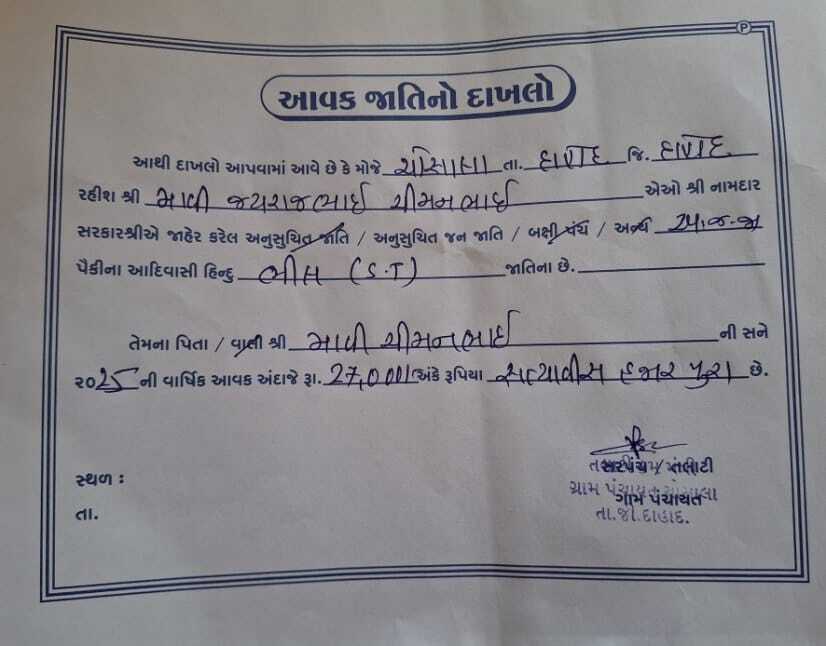 આવક જાતિનો દાખલો
આથી દાખલો આપવામાં આવે છે કે મોજે ચોસાલા તા. દાહોદ જિ. દાહોદ
રહીશ શ્રી ભાભોર જયરાજભાઈ ચીમનભાઈ એઓ શ્રી નામદાર
સરકારશ્રીએ જાહેર કરેલ અનુસુચિત જાતિ / અનુસુચિત જન જાતિ / બક્ષી પંચ / અન્ય
પૈકીના આદિવાસી હિન્દુ ભીલ (S.T) જાતિના છે.
તેમના પિતા / વાલી શ્રી ચીમનભાઈ ની સને
૨૦25 ની વાર્ષિક આવક અંદાજે રૂા. 27,000/ અંકે રૂપિયા સત્યાવીસ હજાર પુરા છે.
સ્થળ :
તા.
ગ્રામ પંચાયત
તા.જી.દાહોદ.